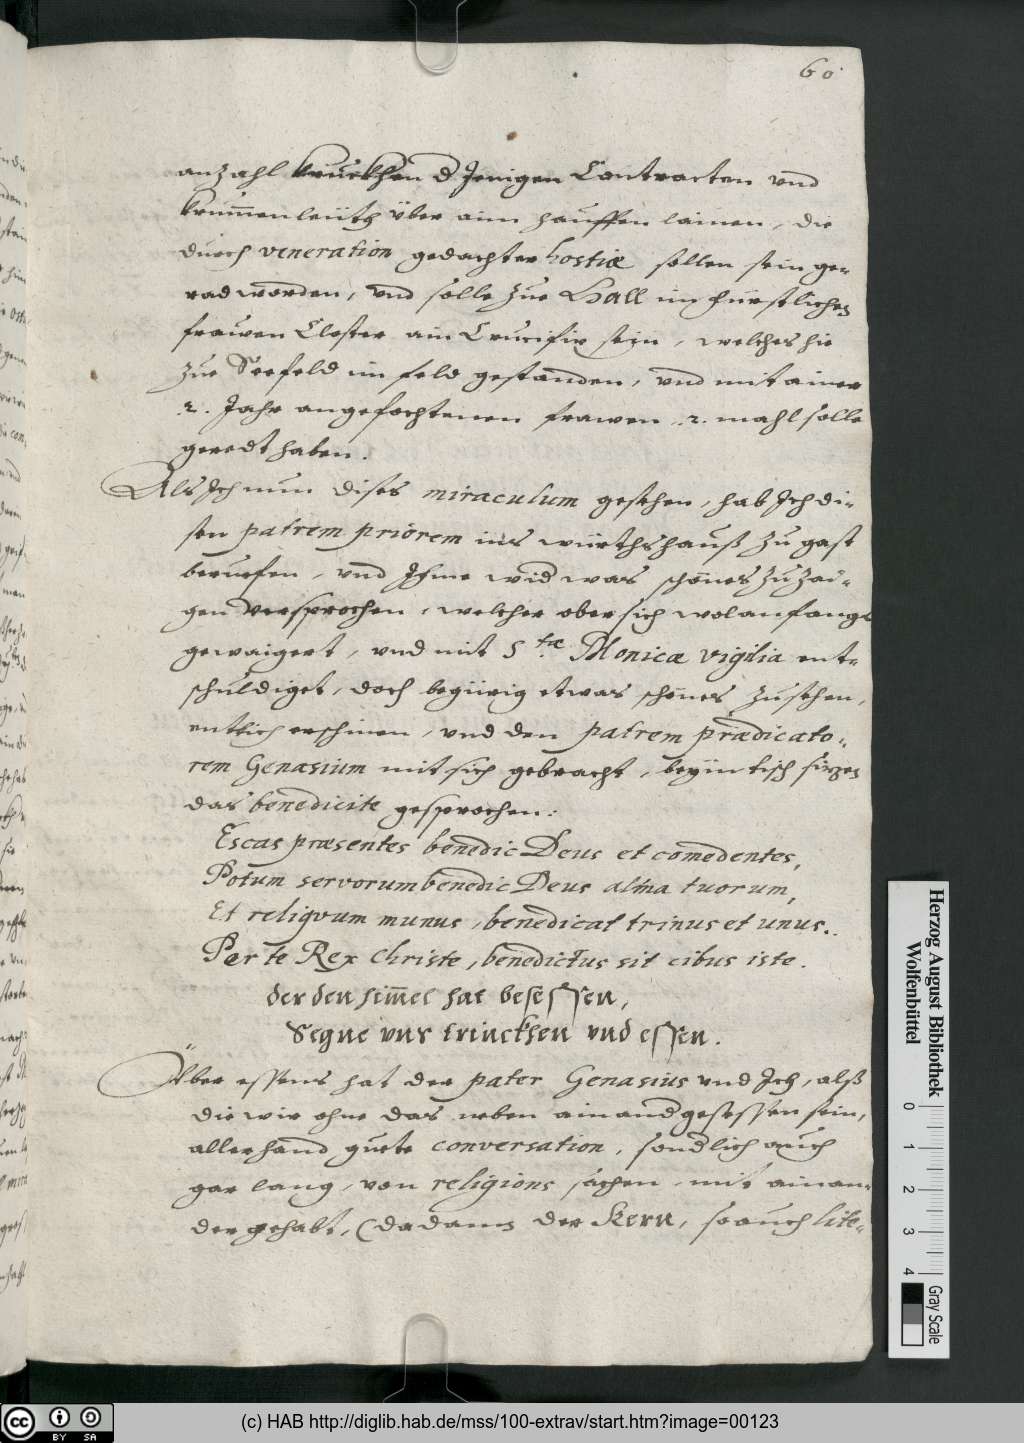 60.
anzahl kruckhen d Jenigen Contracten vnd
krummenleüth über ainn hauffen lainen, die
durch veneration gedachter hostiæ sollen sein ge-
rad worden, vnd solle zue Hall im fürstlichen
frawen Closter ain Crucifix sein, welches hie
zue Seefeld im feld gestanden, vnd mit ainer
2. Jahr angefochtenen frawen .2. mahl solle
geredt haben.
Als Ich nun dises miraculum gesehen, hab Ich di-
sen patrem priorem ins würthshauß zu gast
beruefen, vnd Ihme wid was schönes zu zai-
gen versprochen, welcher ober sich wol anfangs
gewaigert, vnd mit S.tæ Monicæ vigilia ent-
schuldiget, doch begürig etwas schönes zusehen,
entlich erschinen, vnd den patrem prædicato-
rem Genasium mit sich gebracht, beÿm tisch sitzen
das benedicite gesprochen:
Escas præsentes benedic Deus et comedentes,
Potum servorum benedic Deus alma tuorum,
Et reliqvum munus, benedicat trinus et unus.
Per te Rex Christe, benedictus sit cibus iste.
der den himel hat besessen,
Segne vns trinckhen vnd essen.
Über essens hat der pater Genasius vnd Ich, alß
die wir ohne das neben ainand gesessen sein,
allerhand guete conversation, sondlich auch
gar lang, von religions sachen, mit ainan-
der gehabt, (da dann der Kern, so auch lite-
Herzog August Bibliothek
Wolfenbüttel
0 1 2 3 4
Gray Scale
cc BY SA
(c) HAB http://diglib.hab.de/mss/100-extrav/start.htm?image=00123